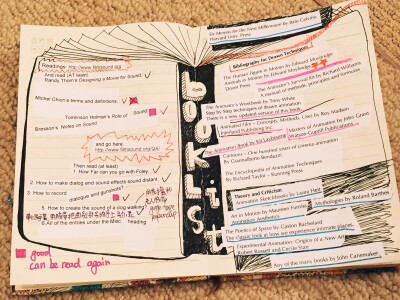 Readings: http://www.filmsound.org/
And read (AT least)
Randy Thom's Designing a Movie for Sound.
Michel Chion's terms and definitions.
Tomlinson Holman's Role of Sound
Bresson's Notes on Sound
and go here:
http://www.filmsound.org/QA/
Then read (at least)
1. How Far can you go with Foley.
2. How to make dialog and sound effects sound distant.
3. How to record dialogue and gunshots?
4. How to create the sound of a dog walking?
5. All of the entries under the heading
good
can be read again
book
List
for the New Millennium by Italo Calvino
Harvard Univ. Press
Bibliography for Drawn Techniques
The Human Figure in Motion by Eadweard Muybridge
Animals in Motion by Edward Muybridge
Dover Press
The Animator's Survival Kit by Richard Williams
A manual of methods, principles and formulas
The Animator's Workbook by Tony White
Step by Step techniques of drawn animation
There is a new updated version of this book.
Animated Film - Concepts, Methods, Uses by Roy Madsen
Interland Publishing Inc.
Masters of Animation by John Grant
The Animation Book by Kit Laybourne
Watson-Guptill Publications
Cartoons - One hundred years of cinema animation
By Giannalberto Bendazzi
The Encyclopedia of Animation Techniques
By Richard Taylor - Running Press
Theory and Criticism:
Animation Sketchbooks by Laura Heit
Mythologies by Roland Barthes
Art in Motion by Maureen Furniss
Animation Aesthetics
The Poetics of Space by Gaston Bachelard
The classic look at how we experience intimate places.
Experimental Animation: Origins of a New Art
Robert Russett and Cecile Starr
Any of the many books by John Canemaker